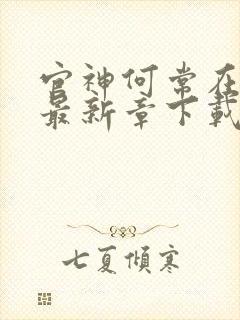 官神何常在
最新章下載
七夏傾寒